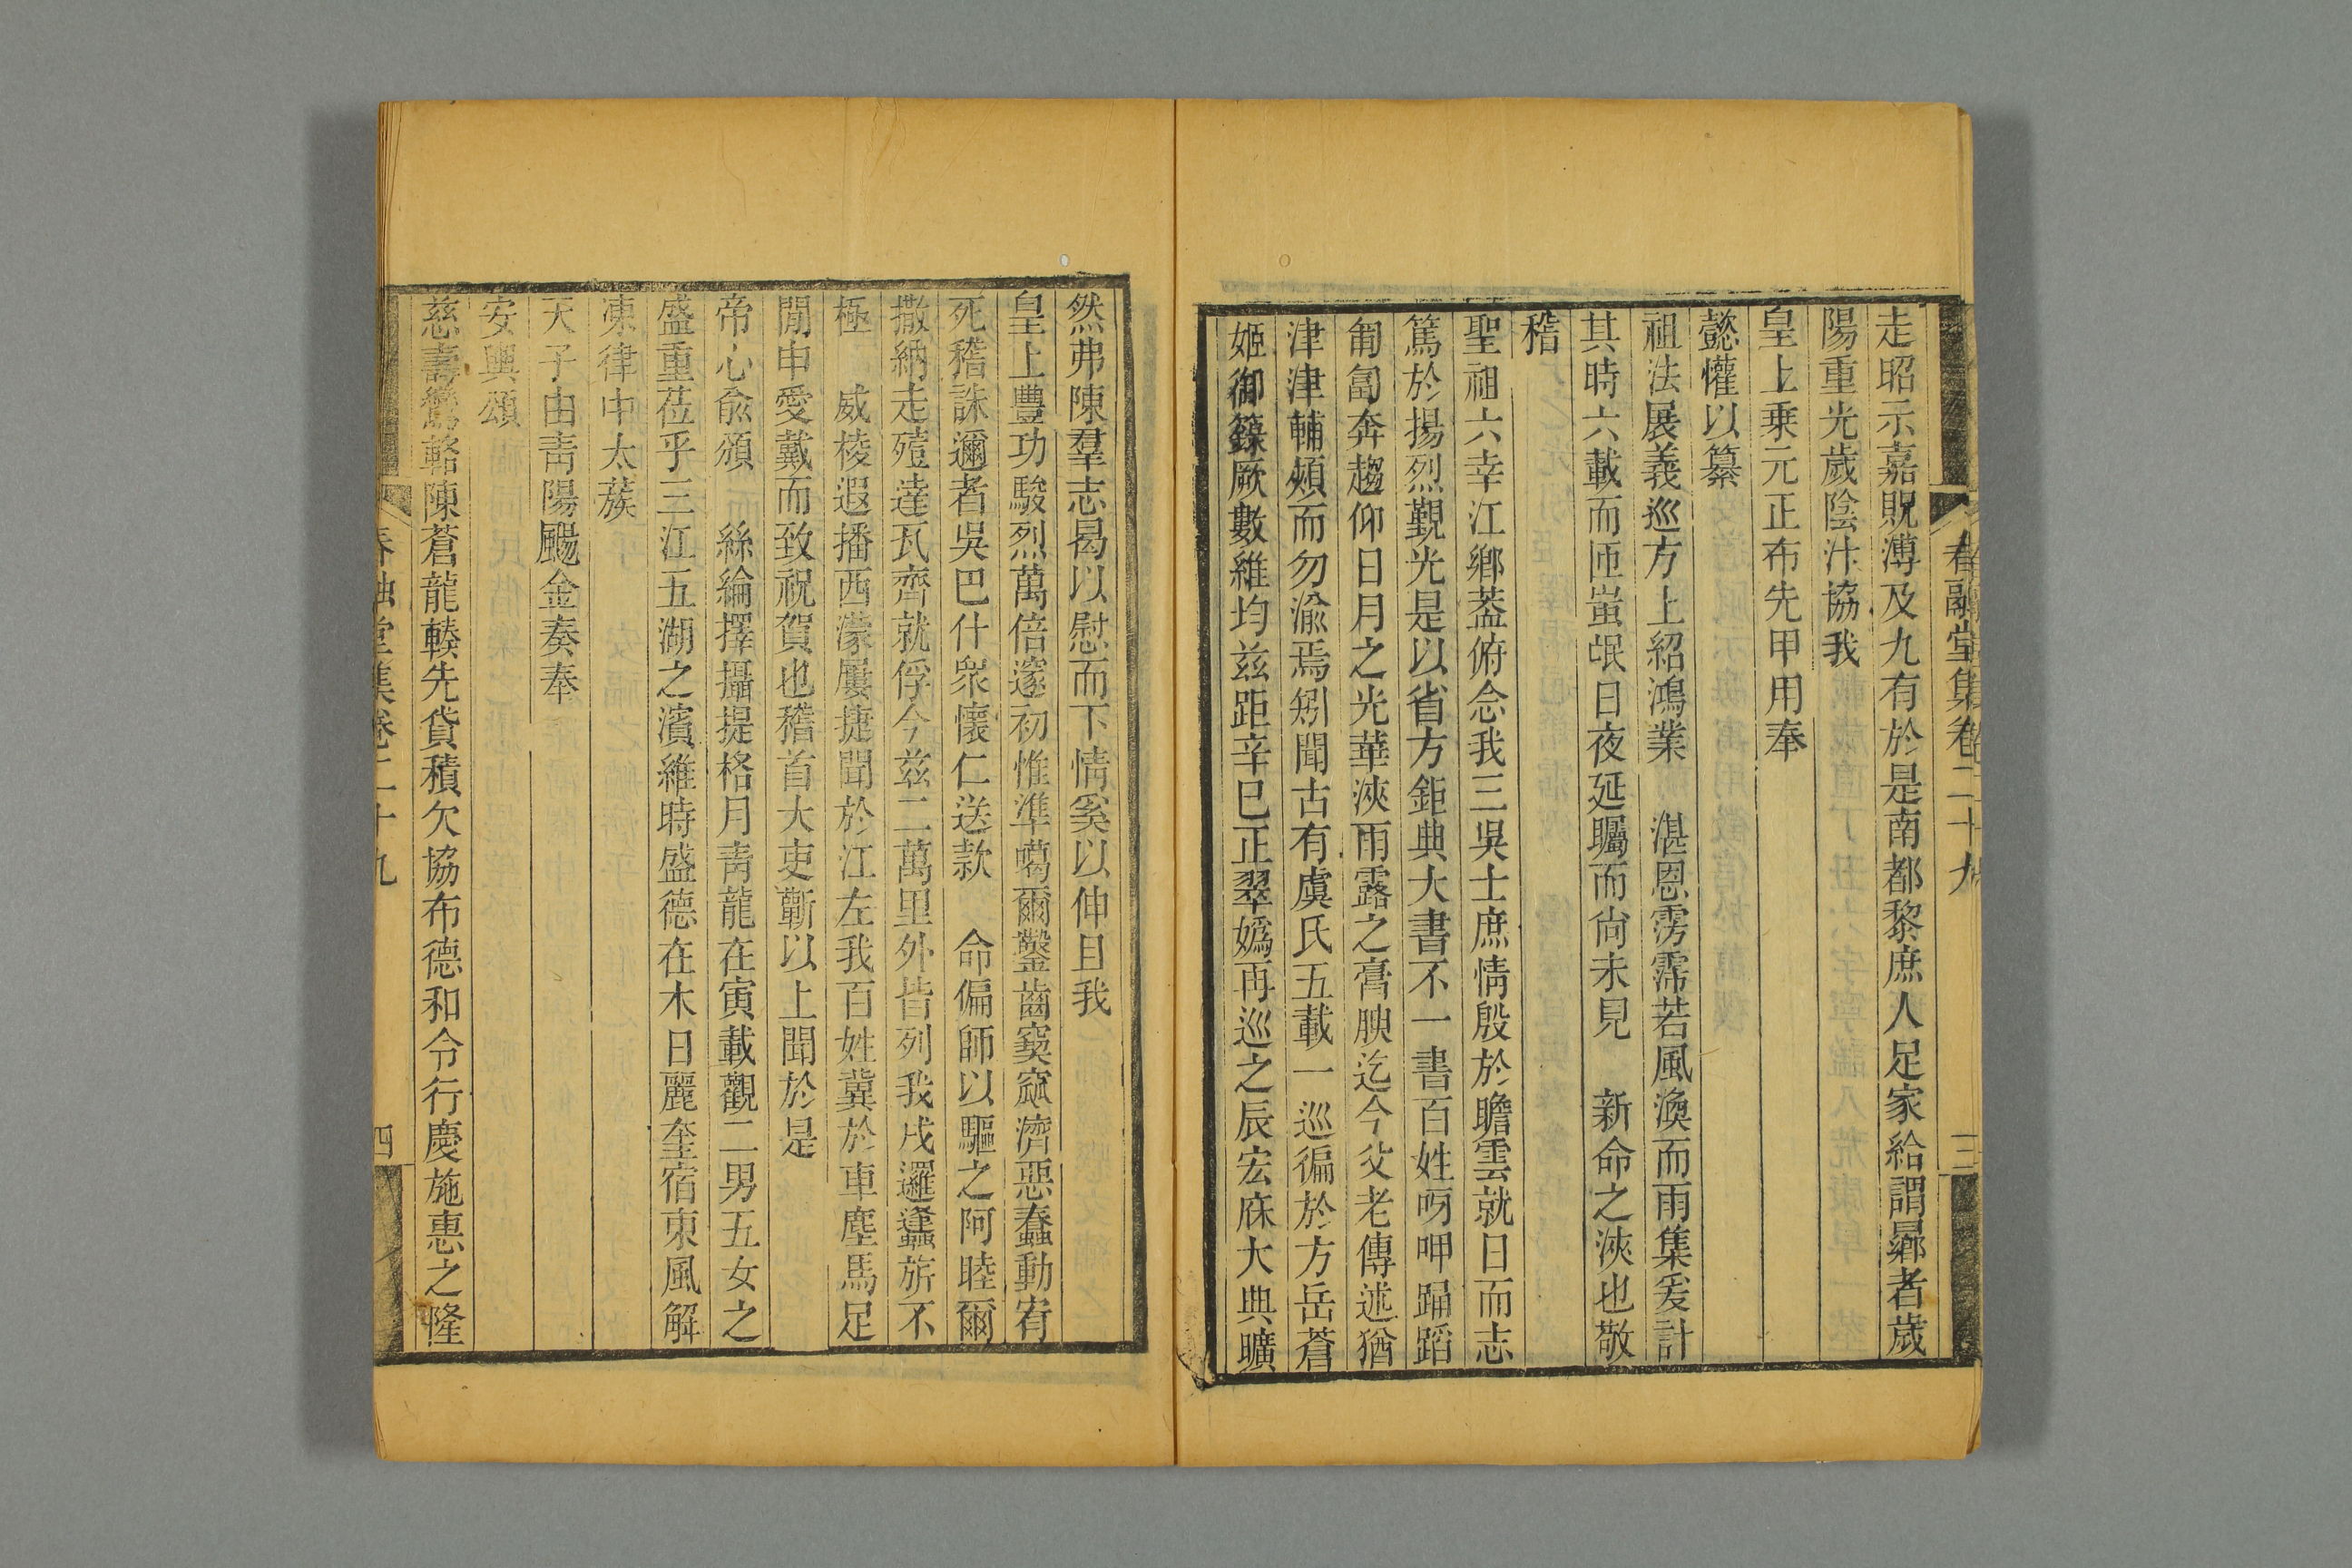 春融堂集卷二十九
三
走昭示嘉貺溥及九有於是南都黎庶人足家給謂曏者歲
陽重光歲陰汁協我
皇上乘元正布先甲用奉
懿懽以纂
祖法展義巡方上紹鴻業　湛恩雱霈若風渙而雨集爰計
其時六載而匝蚩氓日夜延矚而尙未見　新命之浹也敬
稽
聖祖六幸江鄉葢俯念我三吳士庶情殷於瞻雲就日而志
篤於揚烈覲光是以省方鉅典大書不一書百姓呀呷踊蹈
匍匐奔趨仰日月之光華浹雨露之膏腴迄今父老傳述猶
津津輔頰而勿渝焉矧聞古有虞氏五載一巡徧於方岳蒼
姬御籙厥數維均兹距辛巳正翠嬀再巡之辰宏庥大典曠
然弗陳羣志曷以慰而下情奚以伸且我
皇上豐功駿烈萬倍邃初惟準噶爾鑿齒窫窳濟惡蠢動宥
死稽誅邇者吳巴什衆懷仁送款　命偏師以驅之阿睦爾
撒納走殪達瓦齊就俘今兹二萬里外皆列我戍邏逢蟲旂不
極　威棱遐播西濛屢捷聞於江左我百姓冀於車塵馬足
閒申愛戴而致祝賀也稽首大吏蘄以上聞於是
帝心俞頫　絲綸擇攝提格月靑龍在寅載觀二男五女之
盛重莅乎三江五湖之濱維時盛德在木日麗奎宿東風解
凍律中太蔟
天子由靑陽颺金奏奉
安輿頌
慈壽鸞輅陳蒼龍轙先貸積欠協布德和令行慶施惠之隆
春融堂集卷二十九
四